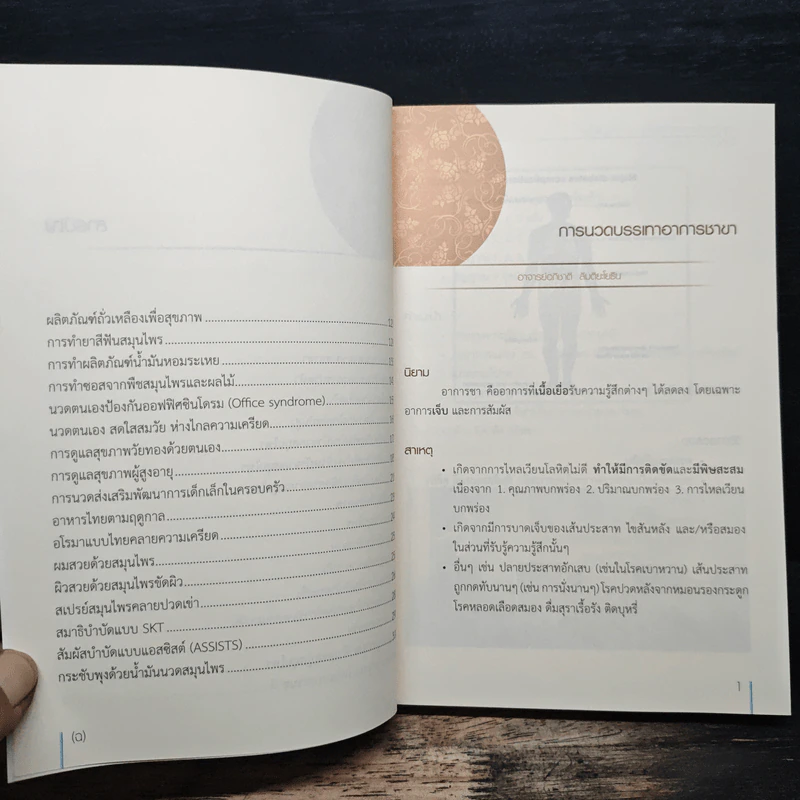 ผลิตภัณฑ์ถั่วเหลืองเพื่อสุขภาพ
การทำยาสีฟันสมุนไพร
การทำผลิตภัณฑ์น้ำมันหอมระเหย
การทำซอสจากพืชสมุนไพรและผลไม้
นวดตนเองป้องกันออฟฟิศซินโดรม (Office syndrome)
นวดตนเอง สดใสสมวัย ห่างไกลความเครียด
การดูแลสุขภาพวัยทองด้วยตนเอง
การดูแลสุขภาพผู้สูงอายุ
การนวดส่งเสริมพัฒนาการเด็กเล็กในครอบครัว
อาหารไทยตามฤดูกาล
อโรมาแบบไทยคลายความเครียด
ผมสวยด้วยสมุนไพร
ผิวสวยด้วยสมุนไพรขัดผิว
สเปรย์สมุนไพรคลายปวดเข่า
สมาธิบำบัดแบบ SKT
สัมผัสบำบัดแบบแอสซิสต์ (ASSISTS)
กระชับพุงด้วยน้ำมันนวดสมุนไพร
(ฉ)
การนวดบรรเทาอาการชาขา
อาจารย์อภิชาติ ลิมติยะโยธิน
นิยาม
อาการชา คืออาการที่เนื้อเยื่อรับความรู้สึกต่างๆ ได้ลดลง โดยเฉพาะ
อาการเจ็บ และการสัมผัส
สาเหตุ
• เกิดจากการไหลเวียนโลหิตไม่ดี ทำให้มีการติดขัดและมีพิษสะสม
เนื่องจาก 1. คุณภาพบกพร่อง 2. ปริมาณบกพร่อง 3. การไหลเวียน
บกพร่อง
• เกิดจากมีการบาดเจ็บของเส้นประสาท ไขสันหลัง และ/หรือสมอง
ในส่วนที่รับรู้ความรู้สึกนั้นๆ
• อื่นๆ เช่น ปลายประสาทอักเสบ (เช่นในโรคเบาหวาน) เส้นประสาท
ถูกกดทับนานๆ (เช่น การนั่งนานๆ) โรคปวดหลังจากหมอนรองกระดูก
โรคหลอดเลือดสมอง ดื่มสุราเรื้อรัง ติดบุหรี่
1